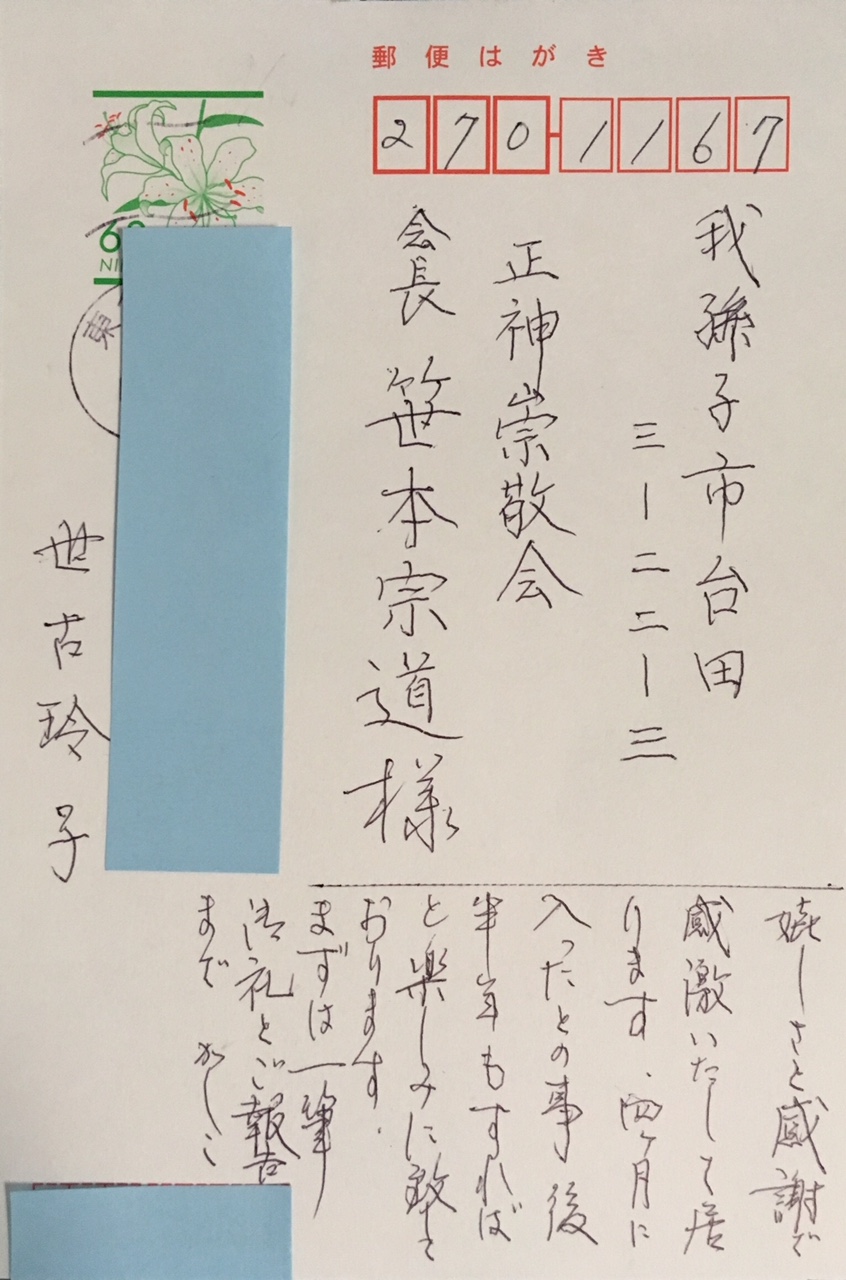 郵便はがき
270-1167
我孫子市台田
三ー二二ー三
正神崇敬会
会長 笹本宗道様
世古玲子
東
嬉しさと感謝で
感激いたして居
ります、四ヶ月に
入ったとの事 後
半年もすれば
と楽しみに致して
おります.
まずは一筆
御礼とご報告
まで かしこ